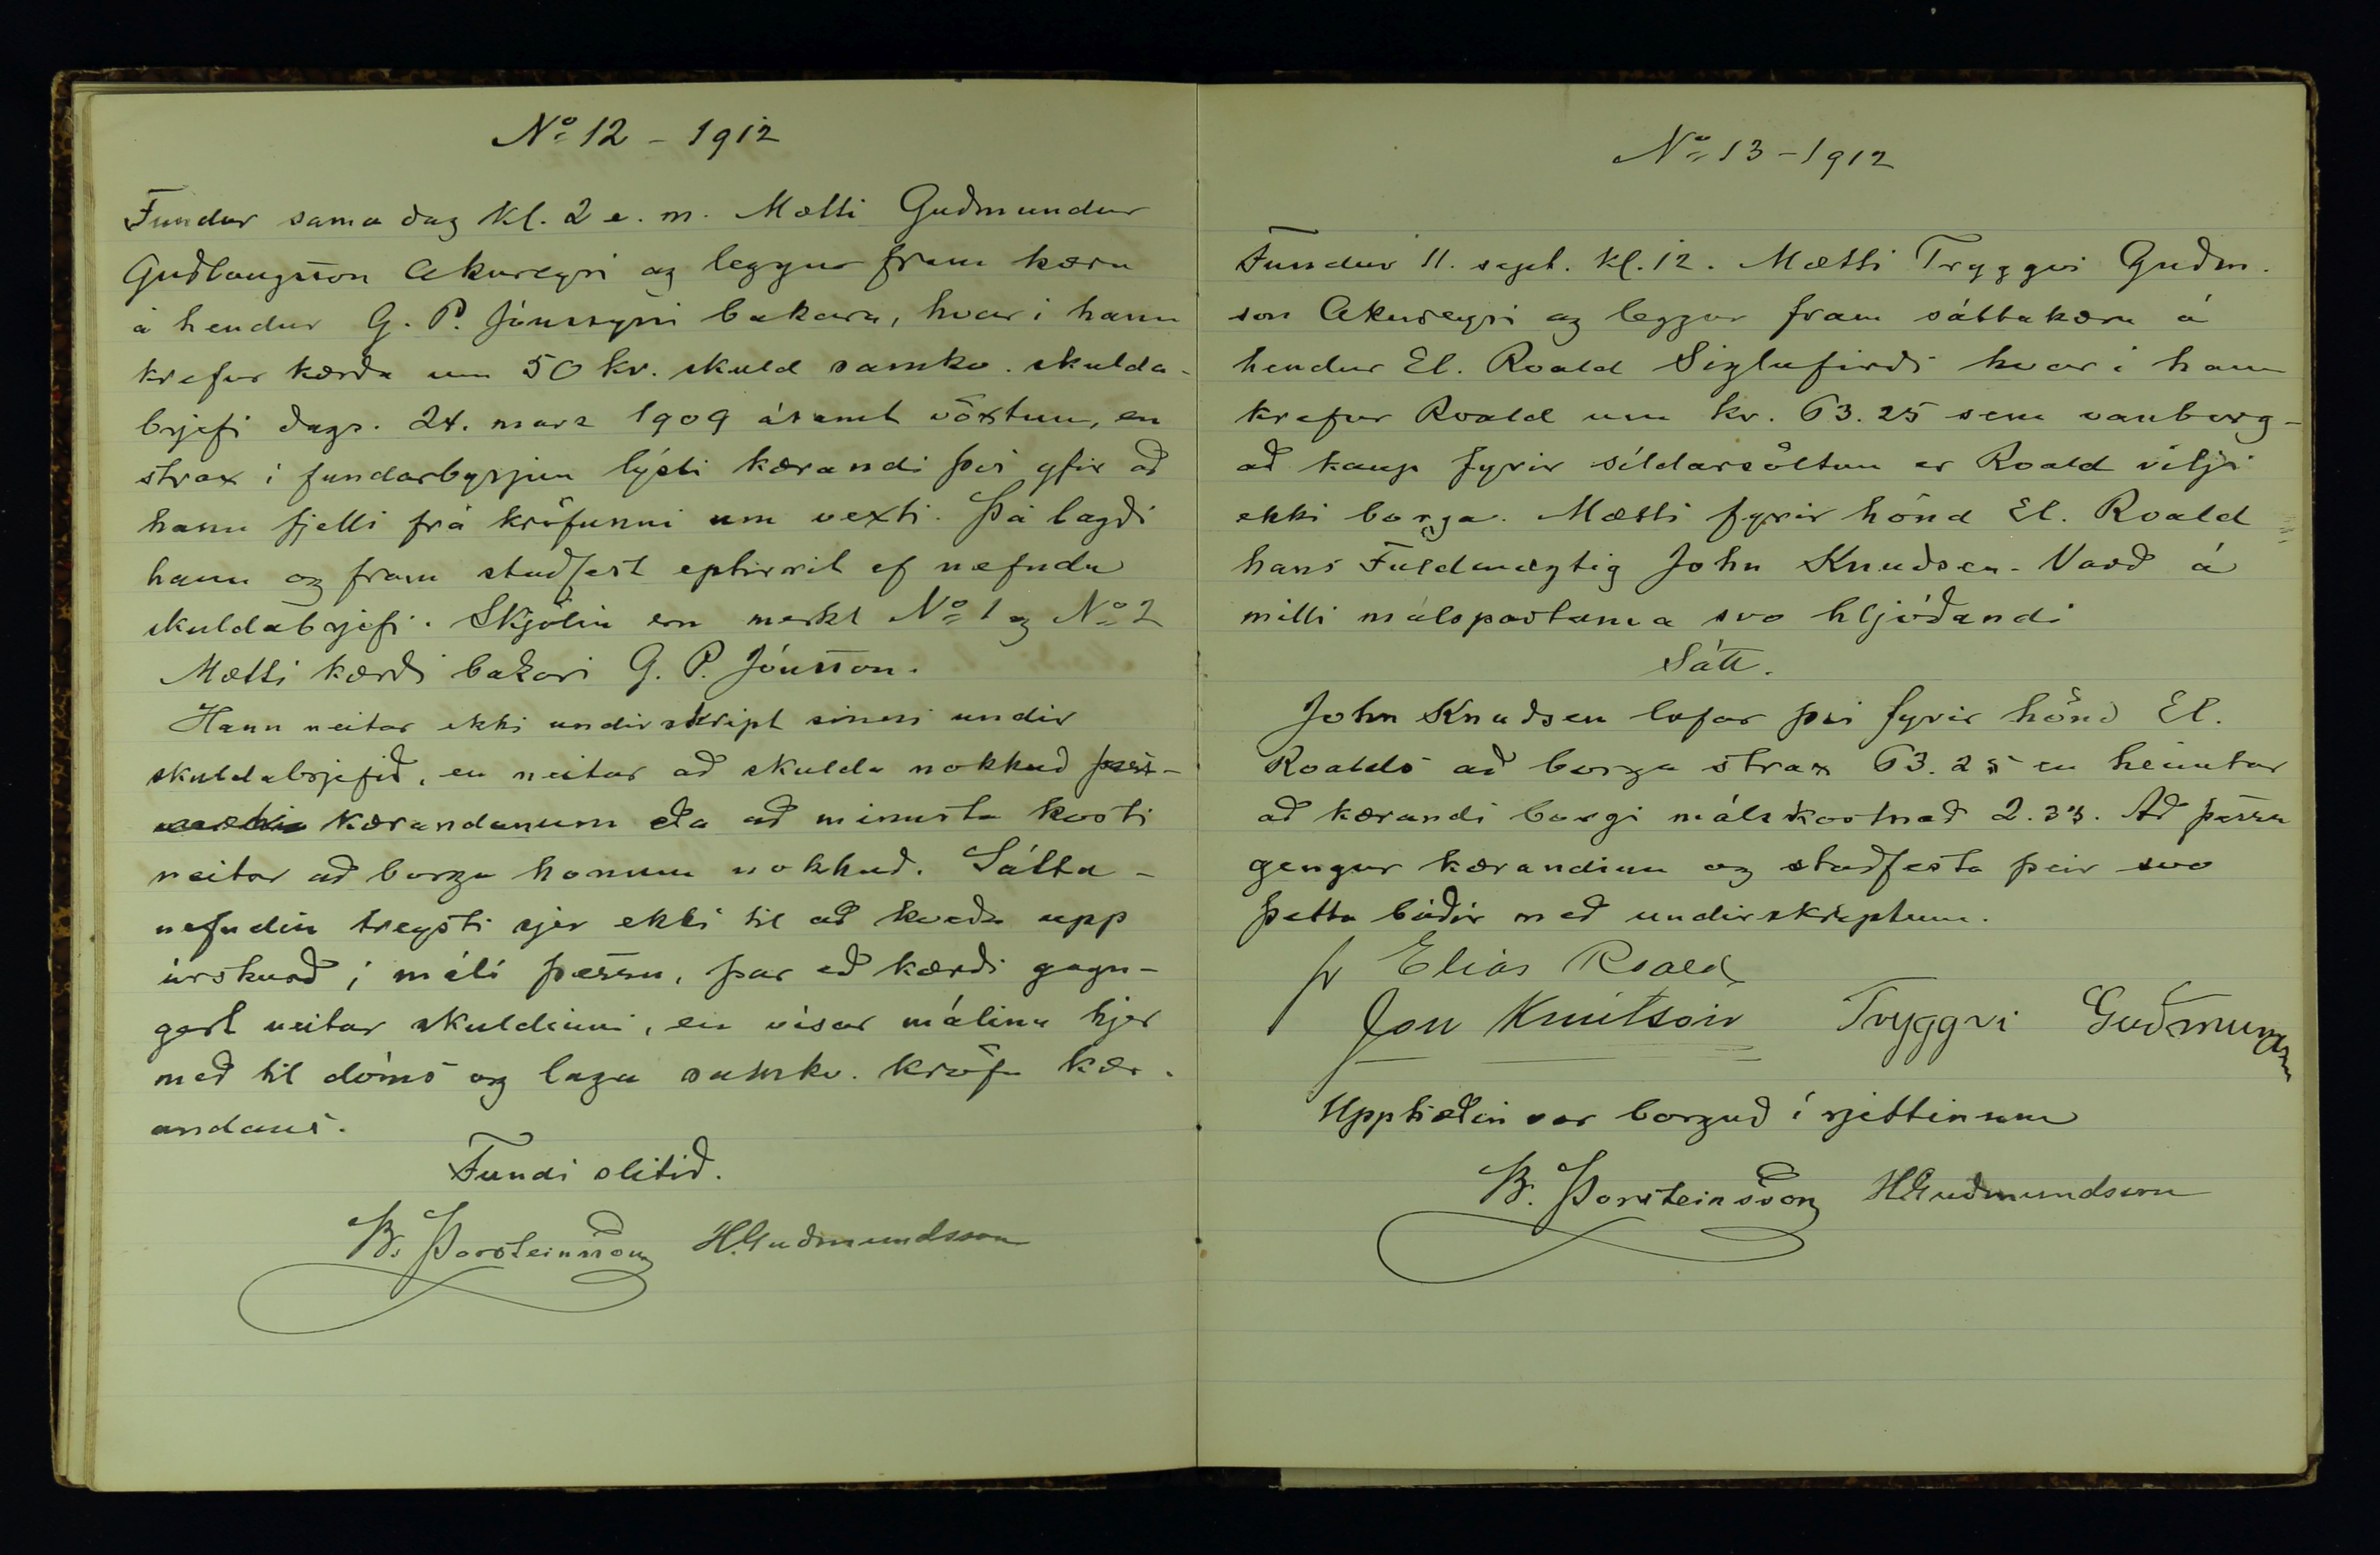 No 12 - 1912
Fundur sama dag kl. 2 e. m. Mætti Guðmundur
Guðlaugsson Akureyri og leggur fram kæru
á hendur G. P. Jónssyni bakara, hvar í hann
krefur kærða um 50 kr. skuld samkv. skulda-
brjefi dags. 24. mars 1909 ásamt vöxtum, en
strax í fundarbyrjun lýsti kærandi því yfir að
hann fjelli frá kröfunni um vexti. Þá lagði
hann og fram staðfest eptirrit af nefndu
skuldabrjefi. Skjölin eru merkt No 1 og No 2
Mætti kærði bakari G. P. Jónsson.
Hann neitar ekki undirskript sinni undir
skuldabrjefið, en neitar að skulda nokkuð
kærandanum eða að minnsta kosti
neitar að borga honum nokkuð. Sátta-
nefndin treysti sjer ekki til að kveða upp
úrskurð í máli þessu, þar eð kærði gagn-
gert neitar skuldinni, en vísar málinu hjer
með til dóms og laga samkv. kröfu kær-
andans.
Fundi slitið.
B. Þorsteinsson HGuðmundsson
No 13 - 1912
Fundur 11. sept. kl. 12. Mætti Tryggvi Guðm.
son Akureyri og leggur fram sáttakæru á
hendur El. Roald Siglufirði hvar í hann
krefur Roald um kr. 63.25 sem vanborg-
að kaup fyrir síldarsöltun er Roald vilji
ekki borga. Mætti fyrir hönd El. Roald
hans Fuldmægtig John Knudsen. Varð á
milli málspartanna svo hljóðandi
Sátt.
John Knudsen lofar því fyrir hönd El.
Roalds að borga strax 63.25 en heimtar
að kærandi borgi málskostnað 2.35. Að þessu
gengur kærandinn og staðfesta þeir svo
þetta báðir með undirskriptum.
pr Elias Roald
Jon Knutson Tryggvi Guðmundsn
Upphæðin var borguð í rjettinum
B. Þorsteinsson HGuðmundsson